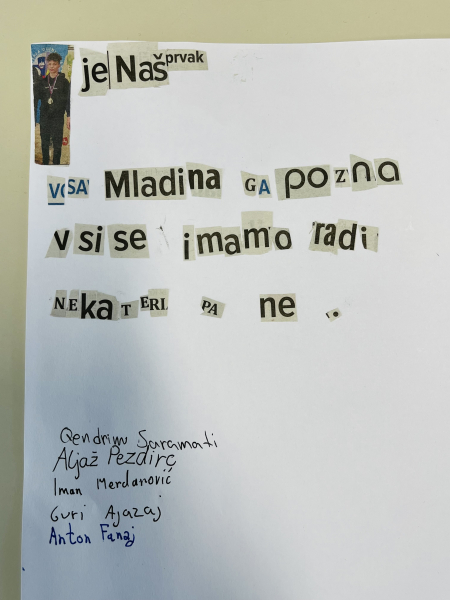 je Naš prvak
VSA Mladina GA pozna
vsi se imamo radi
NEkaTERI PA ne.
Qendrim Saramati
Aljaž Pezdirc
Iman Merdanović
Guri Ajazaj
Anton Fanaj